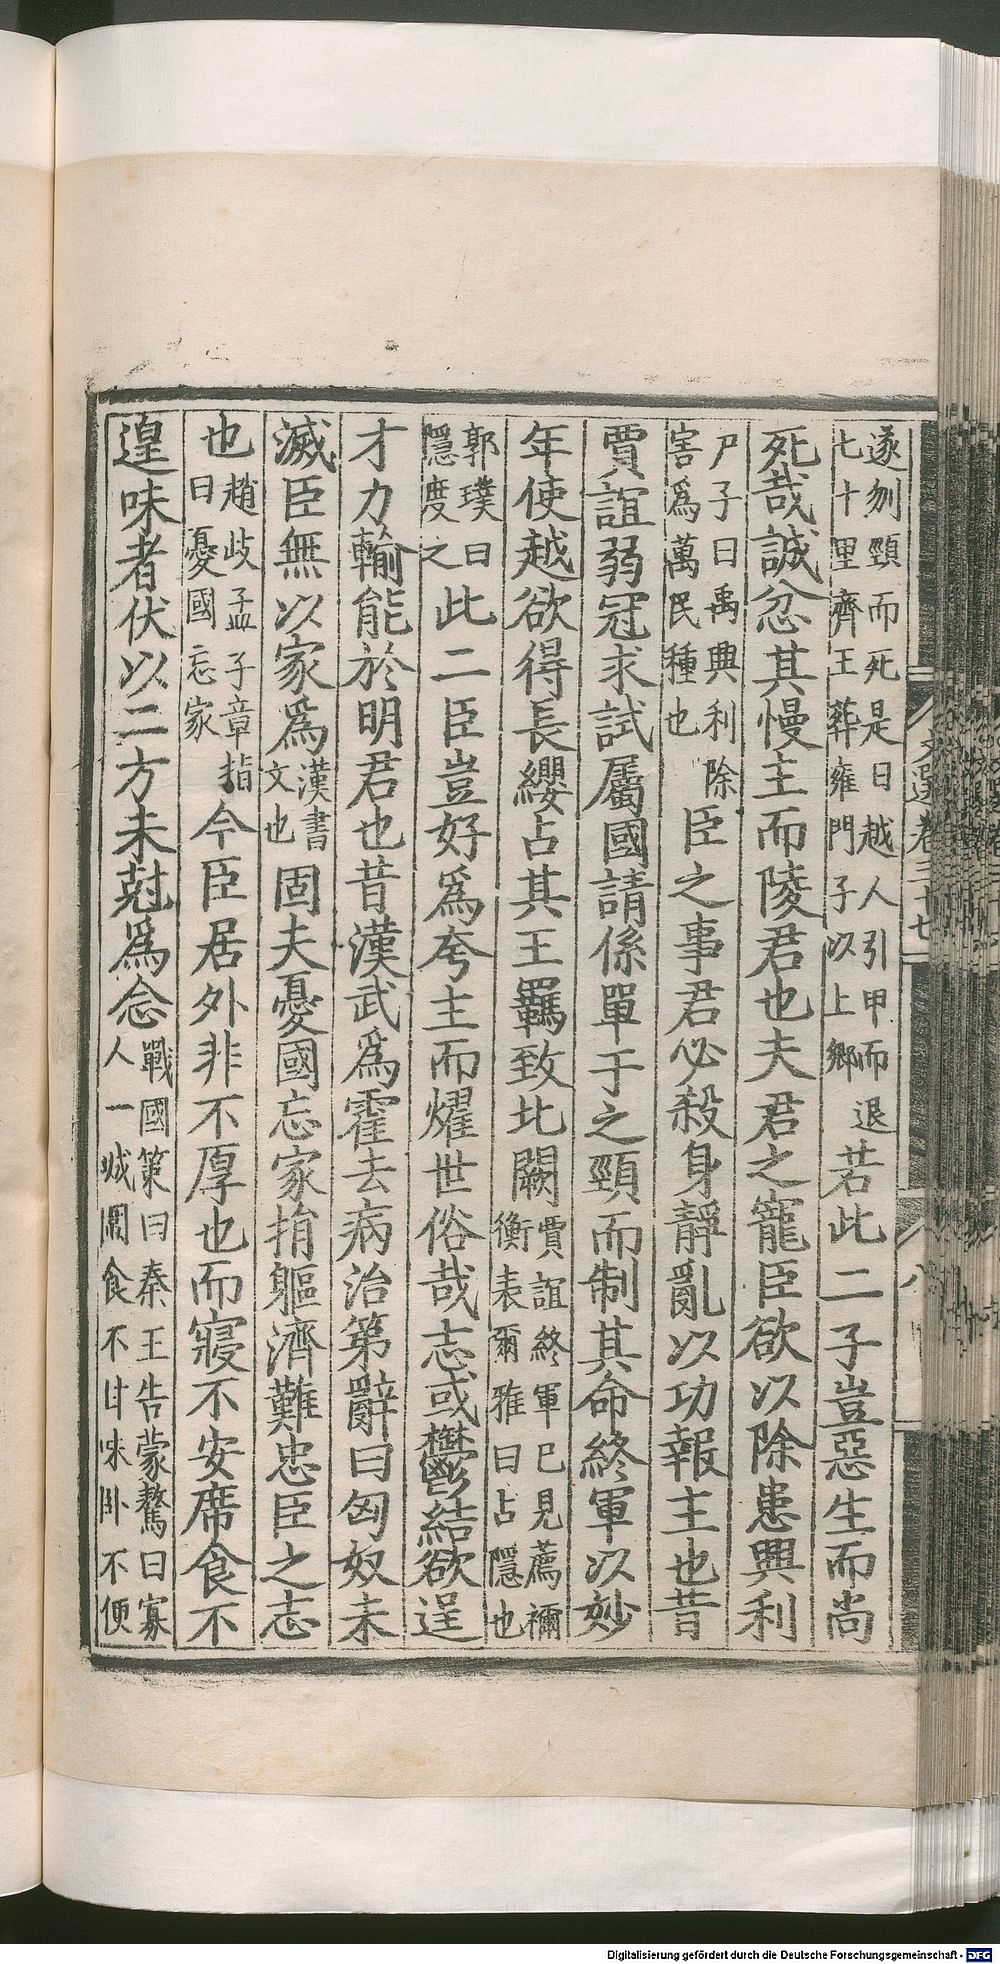 遂刎頸而死是日越人引甲而退
七十里齊王葬雍門子以上鄉
若此二子豈惡生而尚
死哉誠忿其慢主而陵君也夫君之寵臣欲以除患興利
尸子曰禹興利除
害爲萬民種也
臣之事君必殺身靜亂以功報主也昔
賈誼弱冠求試屬國請係單于之頸而制其命終軍以妙
年使越欲得長纓占其王羈致北闕
賈誼終軍巳見薦禰
衡表爾雅曰占隱也
郭璞曰
隱度之
此二臣豈好爲夸主而燿世俗哉志或鬱結欲逞
才力輸能於明君也昔漢武爲霍去病治第辭曰匈奴未
滅臣無以家爲
漢書
文也
固夫憂國忘家捐軀濟難忠臣之志
也
趙岐孟子章指
曰憂國忘家
今臣居外非不厚也而寢不安席食不
遑味者伏以二方未尅爲念
戰國策曰秦王告蒙驁曰寡
人一城圍食不甘味卧不便
文選卷三十七
八
Digitalisierung gefördert durch die Deutsche Forschungsgemeinschaft - DFG